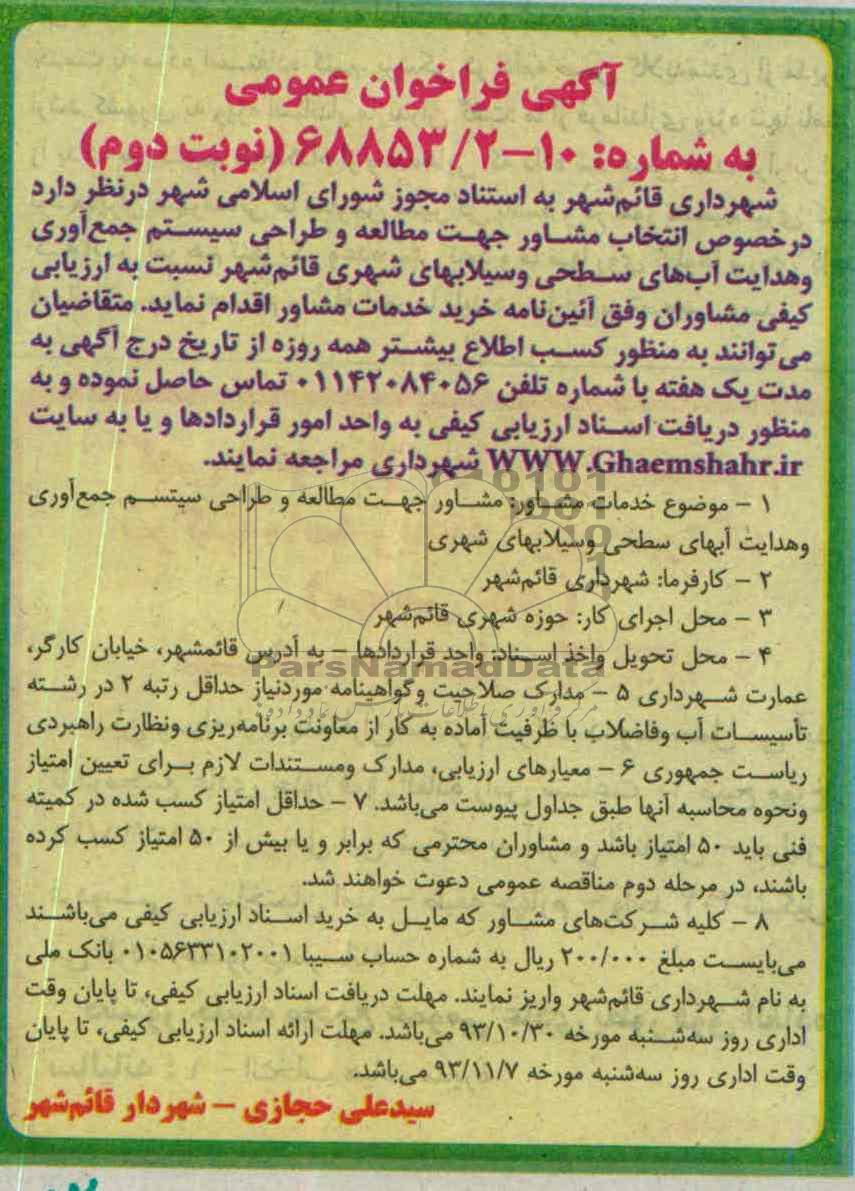 آگهی فراخوان عمومی
به شماره: ۱۰-۶۸۸۵۳/۲ (نوبت دوم)
شهرداری قائم‌شهر به استناد مجوز شورای اسلامی شهر درنظر دارد
درخصوص انتخاب مشاور جهت مطالعه و طراحی سیستم جمع‌آوری
وهدایت آب‌های سطحی وسیلابهای شهری قائم‌شهر نسبت به ارزیابی
کیفی مشاوران وفق آئین‌نامه خرید خدمات مشاور اقدام نماید. متقاضیان
می‌توانند به منظور کسب اطلاع بیشتر همه روزه از تاریخ درج آگهی به
مدت یک هفته با شماره تلفن ۰۱۱۴۲۰۸۴۰۵۶ تماس حاصل نموده و به
منظور دریافت اسناد ارزیابی کیفی به واحد امور قراردادها و یا به سایت
WWW.Ghaemshahr.ir شهرداری مراجعه نمایند.
۱ – موضوع خدمات مشاور: مشاور جهت مطالعه و طراحی سیتسم جمع‌آوری
وهدایت آبهای سطحی وسیلابهای شهری
۲ – کارفرما: شهرداری قائم‌شهر
۳ – محل اجرای کار: حوزه شهری قائم‌شهر
۴ – محل تحویل واخذ اسناد: واحد قراردادها – به آدرس قائمشهر، خیابان کارگر،
ParsNamadData
عمارت شهرداری ۵ – مدارک صلاحیت وگواهینامه موردنیاز حداقل رتبه ۲ در رشته
تأسیسات آب وفاضلاب با ظرفیت آماده به کار از معاونت برنامه‌ریزی ونظارت راهبردی
ریاست جمهوری ۶ – معیارهای ارزیابی، مدارک ومستندات لازم برای تعیین امتیاز
ونحوه محاسبه آنها طبق جداول پیوست می‌باشد. ۷ – حداقل امتیاز کسب شده در کمیته
فنی باید ۵۰ امتیاز باشد و مشاوران محترمی که برابر و یا بیش از ۵۰ امتیاز کسب کرده
باشند، در مرحله دوم مناقصه عمومی دعوت خواهند شد.
۸ – کلیه شرکت‌های مشاور که مایل به خرید اسناد ارزیابی کیفی می‌باشند
می‌بایست مبلغ ۲۰۰/۰۰۰ ریال به شماره حساب سیبا ۰۱۰۵۶۳۳۱۰۲۰۰۱ بانک ملی
به نام شهرداری قائم‌شهر واریز نمایند. مهلت دریافت اسناد ارزیابی کیفی، تا پایان وقت
اداری روز سه‌شنبه مورخه ۹۳/۱۰/۳۰ می‌باشد. مهلت ارائه اسناد ارزیابی کیفی، تا پایان
وقت اداری روز سه‌شنبه مورخه ۹۳/۱۱/۷ می‌باشد.
سیدعلی حجازی – شهردار قائم‌شهر